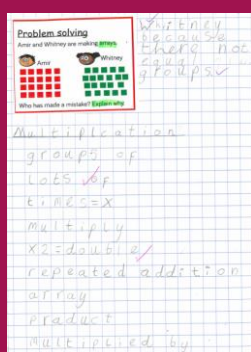 Problem solving
Amir and Whitney are making arrays.
Amir
Whitney
Who has made a mistake? Explain why.
Whitney
because
there not
equal
groups
Multiplication
groups of
lots of
times = x
multiply
x2 = double
repeated addition
array
product
multiplied by